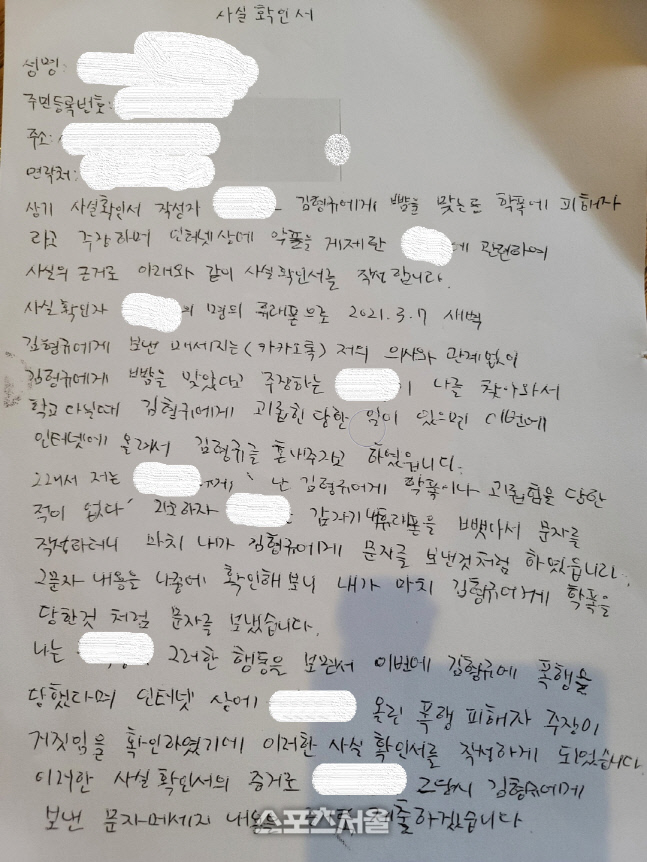 사실 확인서
성명:
주민등록번호:
주소:
연락처:
상기 사실확인서 작성자 김형규에게 뺨을 맞는등 학폭에 피해자
라고 주장하며 인터넷상에 악플을 게제한 에 관련하여
사실의 근거로 아래와 같이 사실확인서를 작성합니다.
사실확인자 의 명의 휴대폰으로 2021.3.7 새벽
김형규에게 보낸 메세지는(카카오톡) 저의 의사와 관계없이
김형규에게 뺨을 맞았다고 주장하는 나를 찾아와서
학교다닐때 김형규에게 괴립힌당한 일이 있으면 이번에
인터넷에 올려서 김형규를 혼내주자고 하였읍니다.
그래서 저는 에게 난 김형규에게 학폭이나 괴립힘을 당한
적이 없다" 감자기 휴대폰을 뺏아서 문자를
작성하더니 마치 내가 김형규에게 문자를 보낸것처럼 하였읍니다.
그문자 내용을 나중에 확인해보니 내가 마치 김형규에게 학폭을
당한것 처럼 문자를 보냈습니다.
나는 그러한 행동을 보면서 이번에 김형규에 폭행을
당했다며 인터넷 상에 올린 폭행 피해자 주장이
거짓임을 확인하였기에 이러한 사실 확인서를 작성하게 되었습니다
이러한 사실 확인서의 증거로 그당시 김형규에게
보낸 문자메세지 내용을 제출하겠습니다.
스포츠서울